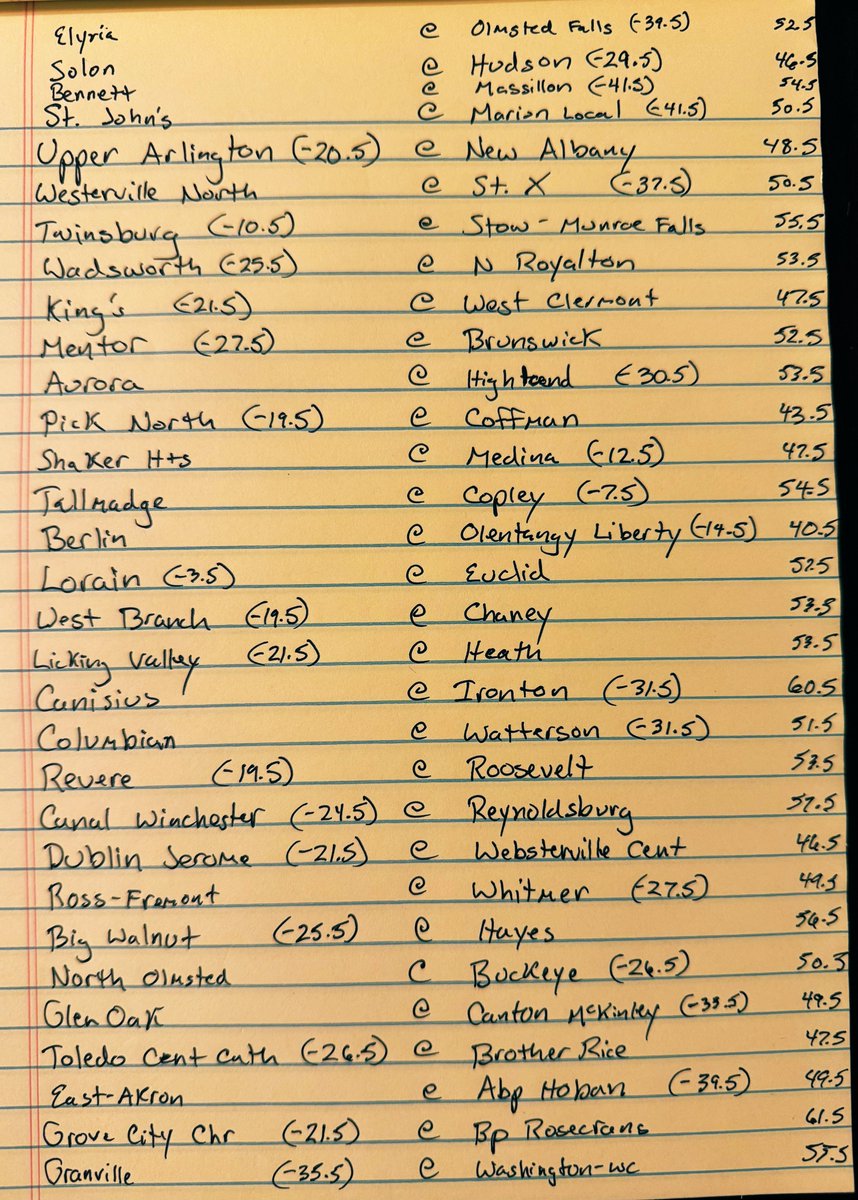 Elyria @ Olmsted Falls (-39.5) 52.5
Solon @ Hudson (-29.5) 46.5
Bennett @ Massillon (-41.5) 54.5
St. John's @ Marion Local (-41.5) 50.5
Upper Arlington (-20.5) @ New Albany 48.5
Westerville North @ St. X (-37.5) 50.5
Twinsburg (-10.5) @ Stow-Munroe Falls 55.5
Wadsworth (-25.5) @ N Royalton 53.5
King's (-21.5) @ West Clermont 47.5
Mentor (-27.5) @ Brunswick 52.5
Aurora @ Highland (-30.5) 53.5
Pick North (-19.5) @ Coffman 43.5
Shaker Hts @ Medina (-12.5) 47.5
Tallmadge @ Copley (-7.5) 54.5
Berlin @ Olentangy Liberty (-14.5) 40.5
Lorain (-3.5) @ Euclid 52.5
West Branch (-19.5) @ Chaney 53.5
Licking Valley (-21.5) @ Heath 53.5
Canisius @ Ironton (-31.5) 60.5
Columbian @ Watterson (-31.5) 51.5
Revere (-19.5) @ Roosevelt 53.5
Canal Winchester (-24.5) @ Reynoldsburg 57.5
Dublin Jerome (-21.5) @ Websterville Cent 46.5
Ross-Fremont @ Whitmer (-27.5) 49.5
Big Walnut (-25.5) @ Hayes 56.5
North Olmsted @ Buckeye (-26.5) 50.5
Glen Oak @ Canton McKinley (-33.5) 49.5
Toledo Cent Cath (-26.5) @ Brother Rice 47.5
East-Akron @ Abp Hoban (-39.5) 49.5
Grove City Chr (-21.5) @ Bp Rosecrans 61.5
Granville (-35.5) @ Washington-WC